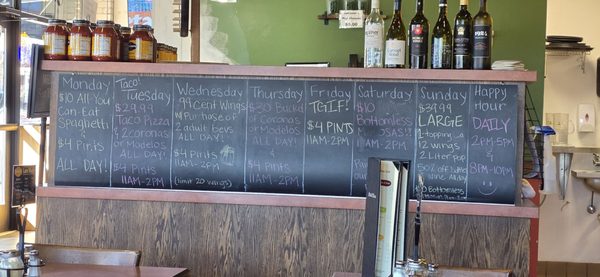 Monday
$10 All You
Can Eat
Spaghetti
ALL DAY!
$4 Pints
ALL DAY!
Taco
Tuesday
$29.99
Taco Pizza
& 2 coronas
or Modelos
ALL DAY!
$4 Pints
11AM-2PM
Wednesday
99 cent Wings
w/ Purchase of
2 adult bevs
ALL DAY!
$4 Pints
11AM-2PM
(limit 20 wings)
Thursday
$30 Bucket
of Coronas
or Modelos
ALL DAY!
$4 Pints
11AM-2PM
Friday
TGIF!
$4 PINTS
11AM-2PM
Saturday
$10
Bottomless
ALL DAY!
$4 Pints
11AM-2PM
Sunday
$39.99
LARGE
1-topping
12 wings
2 Liter Pop
$10 Bottomless
Happy
Hour
DAILY
2PM-5PM
&
8PM-10PM